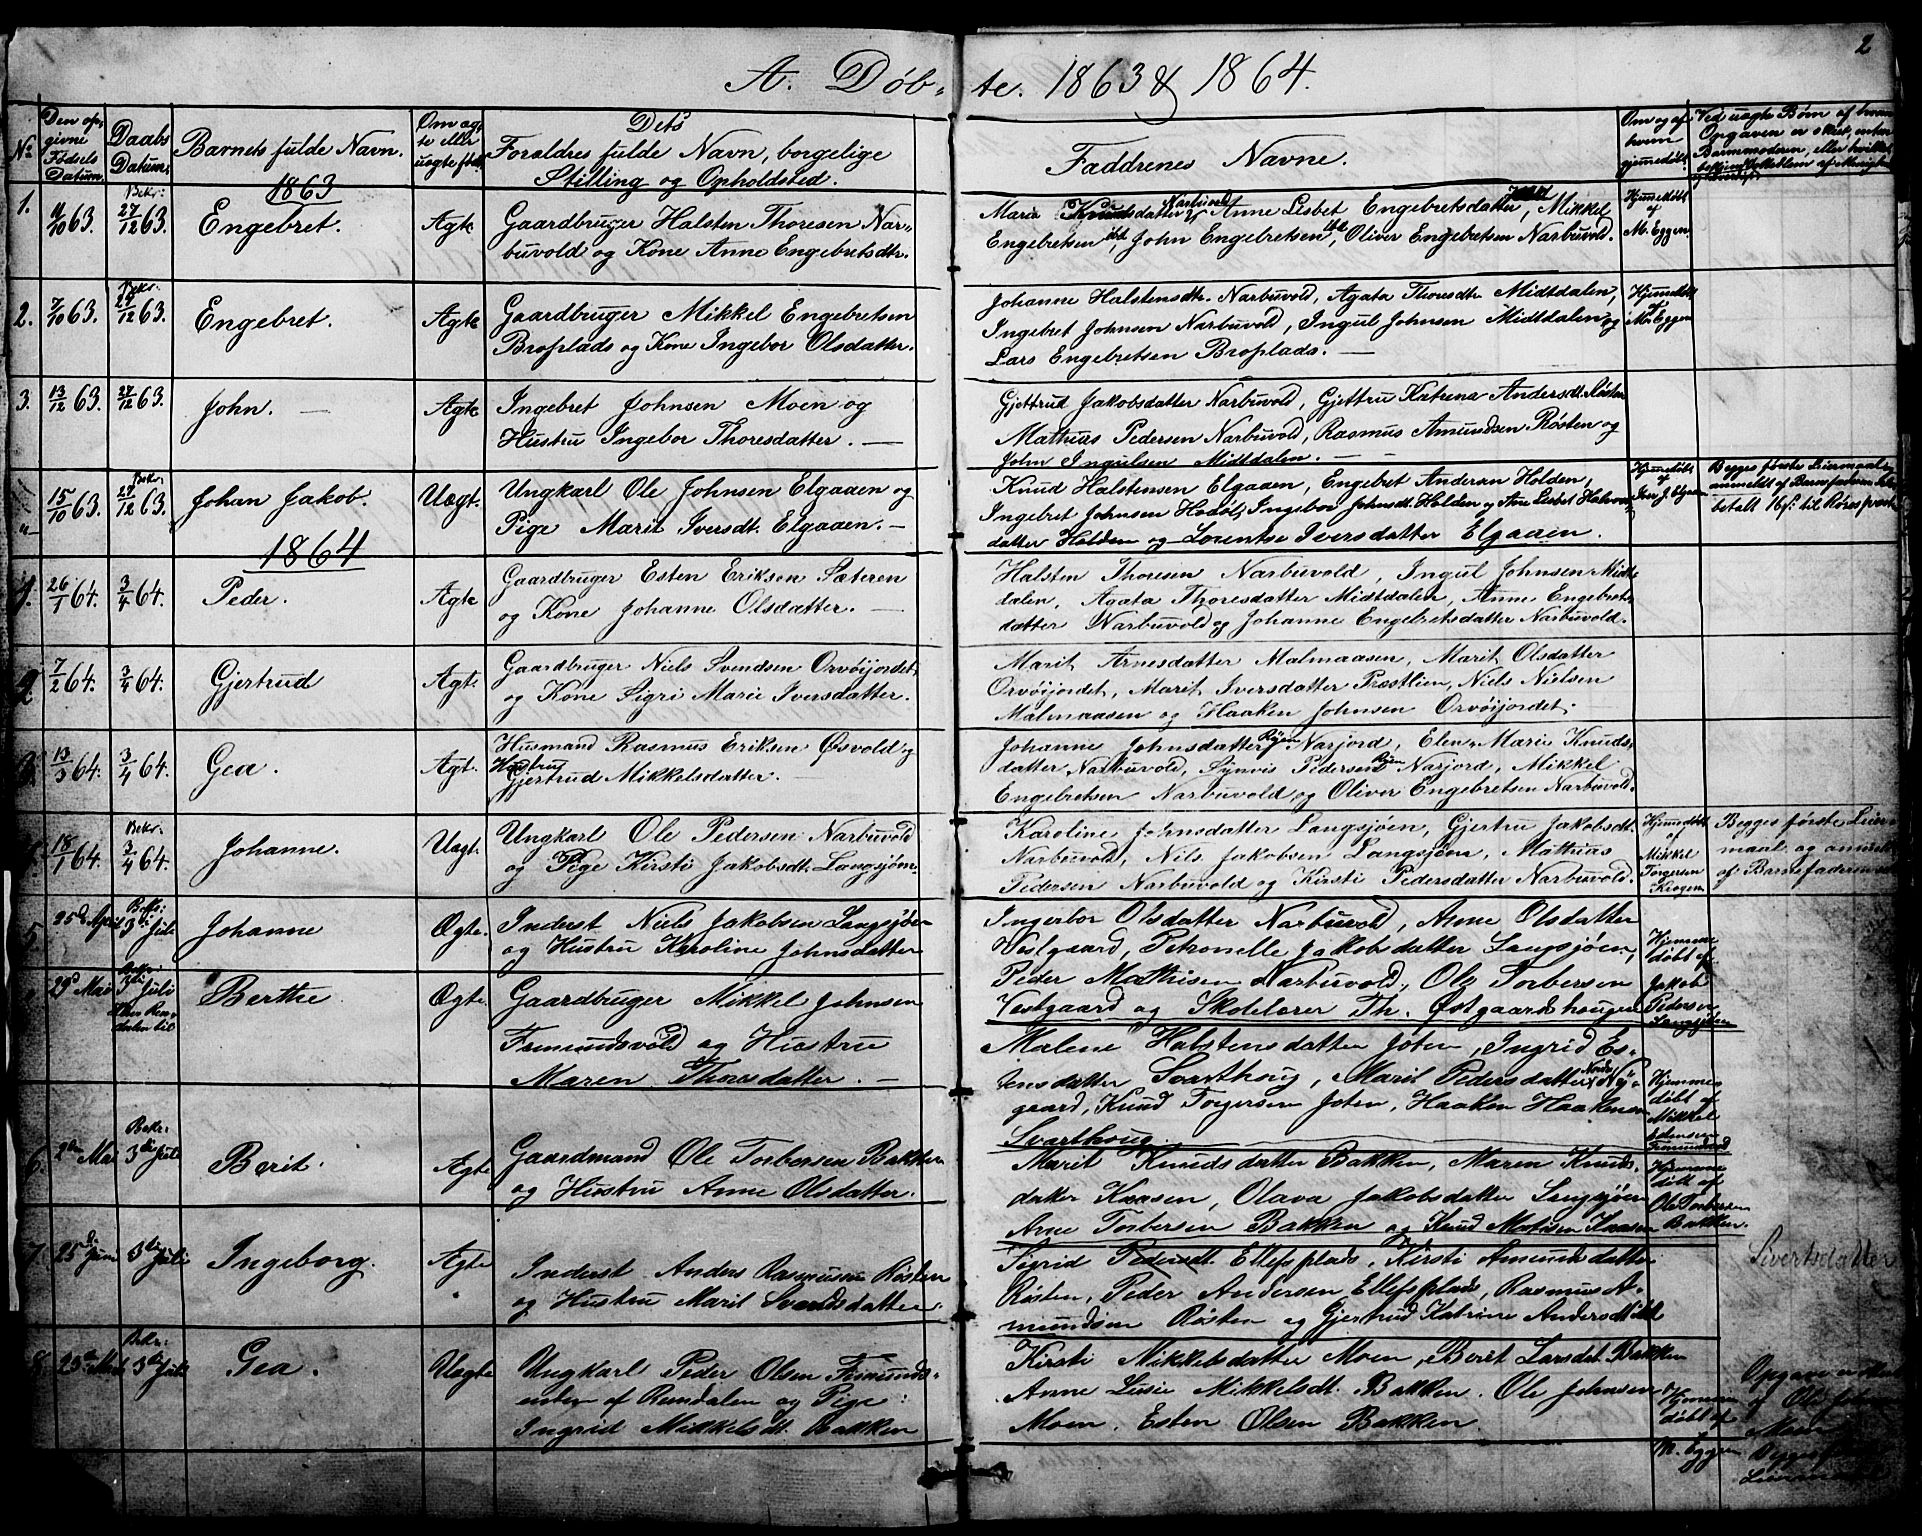 2
A. Døb- te. 1863 & 1864.
No
Den op-
givne
Fødsels
Datum.
Daabs
Datum.
Barnets fulde Navn.
Om æg-
te eller
uægte født.
Dets
Forældres fulde Navn, borgelige
Stilling og Opholdsted.
Faddrenes Navne.
Om og af
hvem
hjemedøbt.
Ved uægte Børn af hvem
Opgaven er skeet, enten
Barnmoderen, eller hvilket
1863
1. 11/10 63. Bekr: 27/12 63. Engebret. Ægte
Gaardbruger Halsten Thoresen Nar-
buvold og Kone Anne Engebretsdtr.
Maria Knudsdatter Narbuvold, Anne Lisbet Engebretsdatter, Mikkel
Engebretsen ibd, John Engebretsen ibd, Oliver Engebretsen Narbuvold.
Hjemedøbt
af
M. Eggen.
2. 7/10 63. Bekr: 27/12 63. Engebret. Ægte
Gaardbruger Mikkel Engebretsen
Broplads og Kone Ingebor Olsdatter.
Johanne Halstensdtr. Narbuvold, Agata Thoresdtr Midtdalen,
Ingebret Johnsen Narbuvold, Ingul Johnsen Midtdalen og
Lars Engebretsen Broplads.
Hjemedøbt
af
M. Eggen
3. 13/12 63. 27/12 63. John. Ægte
Ingebret Johnsen Moen og
Hustru Ingebor Thoresdatter.
Gjertrud Jakobsdatter Narbuvold, Gjertru Katrena Andersdt. Røsten
Mathias Pedersen Narbuvold, Rasmus Amundsen Røsten og
John Ingulsen Midtdalen.
15/10 63. Bekr: 27/12 63. Johan Jakob. Uægt.
Ungkarl Ole Johnsen Elgaaen og
Pige Marit Iversdt. Elgaaen.
Knud Halstensen Elgaaen, Engebret Andersen Holden,
Ingebret Johnsen Hodøl, Ingebor Johnsdt. Holden og Ane Lisbet Halvor-
datter Holden og Lorentse Iversdatter Elgaaen.
Hjemedøbt
af
Iver J. Elgaaen
Begges første Leiermaal og
anmeldt af Barnefaderen
betalt 16 s: til Røros
1864
1. 26/1 64. 3/4 64. Peder. Ægte
Gaardbruger Esten Erikson Sæteren
og Kone Johanne Olsdatter.
Halsten Thoresen Narbuvold, Ingul Johnsen Midt-
dalen, Agata Thoresdatter Midtdalen, Anne Engebrets-
datter Narbuvold og Johanne Engebretsdatter Narbuvold.
2. 7/2 64. 3/4 64. Gjertrud Ægt.
Gaardbruger Niels Svendsen Orvøijordet
og Kone Sigri Marie Iversdatter.
Marit Arnesdatter Malmaasen, Marit Olsdatter
Orvøijordet, Marit Iversdatter Præstlien, Niels Nielsen
Malmaasen og Haaken Johnsen Orvøijordet.
3. 13/3 64. 3/4 64. Gea. Ægt.
Husmand Rasmus Eriksen Øsvold og
Hustru
Gjertrud Mikkelsdatter.
Johanne Johnsdatter Røjen Narjord, Elen Marie Knuds-
datter Narbuvold, Synvis Pedersen Røjen Narjord, Mikkel
Engebretsen Narbuvold og Oliver Engebretsen Narbuvold.
18/1 64. Bekr: 3/4 64. Johanne. Uægt.
Ungkarl Ole Pedersen Narbuvold
og Pige Kirsti Jakobsdt. Langsjøen.
Karoline Johnsdatter Langsjøen, Gjertru Jakobsdt.
Narbuvold, Nils Jakobsen Langsjøen, Mathias
Pedersen Narbuvold og Kirsti Pedersdatter Narbuvold.
Hjemedøbt
af
Mikkel
Torgersen
Krogen
Begges første Leier-
maal og anmeldt
af Barnefaderen
5 25de April Bekr: 3die Juli Johanne Ægte.
Inderst Niels Jakobsen Langsjøen
og Hustru Karoline Johnsdatter
Ingerbor Olsdatter Narbuvold, Anne Olsdatter
Vestgaard, Petronelle Jakobsdatter Langsjøen,
Peder Mathisen Narbuvold, Ole Torbersen
Vestgaard og Skolelærer Th. Østgaardshougen
Hjemme
døbt af
Jakob
Pedersen
Langsjøen
29d Mai Bekr: 3die Juli Berthe Ægte.
Gaardbruger Mikkel Johnsen
Femundsvold og Hustru
Maren Thorsdatter.
Malene Halstensdatter Joten, Ingrid Es-
tensdatter Svarthoug, Marit Pedersdatter Nordre Ny-
gaard, Knud Torgersen Joten, Haaken Haakensen
Svarthoug.
Hjemme
døbt af
Mikkel
6. 2den Mai Bekr: 3die Juli Berit. Ægte
Gaardmand Ole Torbersen Bakken
og Hustru Anne Olsdatter.
Marit Knudsdatter Bakken, Maren Knuds-
datter Kaasen, Olava Jakobsdatter Langsjøen
Arne Torbersen Bakken og Knud Matisen Kaasen
Hjemme
døbt af
Ole Torbersen
Bakken.
7. 25de Juni 3die Juli Ingeborg. Ægte
Inderst Anders Rasmussen Røsten
og Hustru Marit Svendsdatter.
Sigrid Pedersdt. Ellefsplads, Kirsti Amundsdatter
Røsten, Peder Andersen Ellefsplads, Rasmus A-
mundsen Røsten og Gjertrud Katrine Andersdt ibt
Sivertsdatter
8. Bekr: 3die Juli Gea. Uægte
Ungkarl Peder Olsen Femunds-
enden af Rendalen og Pige:
Ingrid Mikkelsdt. Bakken
Kirsti Mikkelsdatter Moen, Berit Larsdt. Bakken
Anne Lusie Mikkelsdt. Bakken. Ole Johnsen
Moen. Esten Olsen Bakken
Hjemme
døbt af
M. Eggen
Opgave er skeet
af Ole Johnsen
Moen
Begges første
Leiermaal